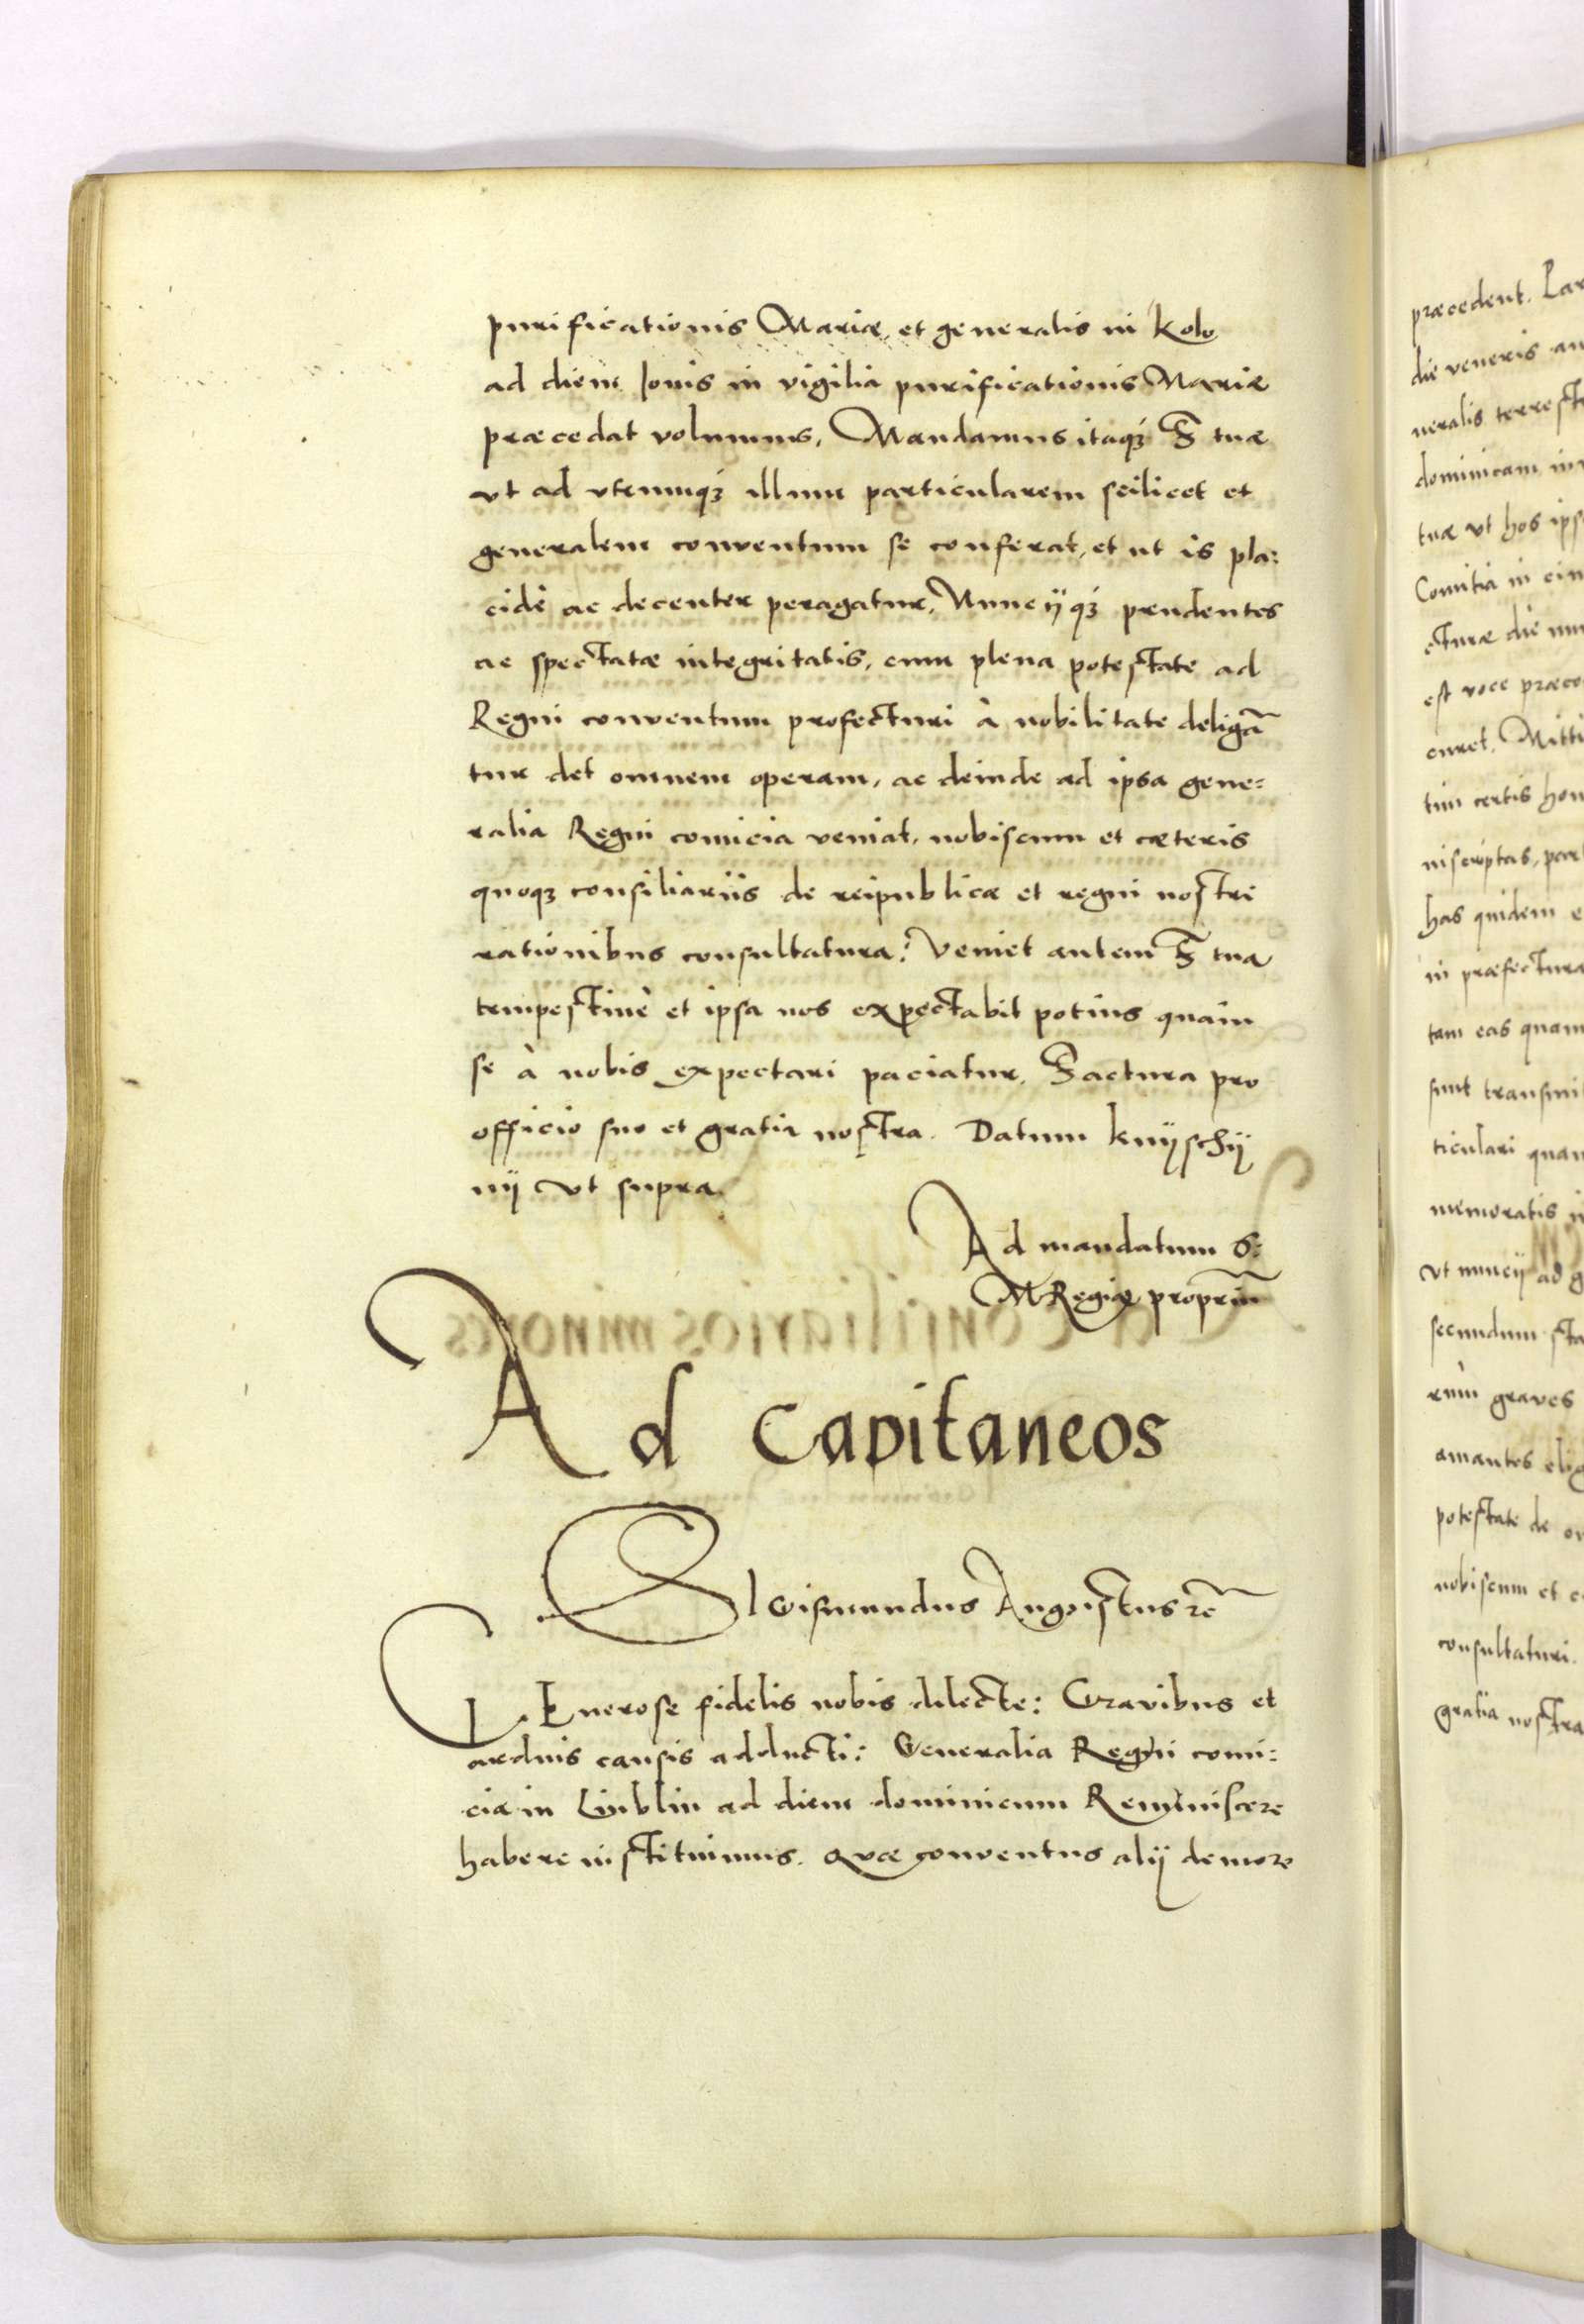 purificationis Mariæ, et generalis in Kolo
ad diem Iovis in vigilia purificationis Mariæ
præcedat volumus, Mandamus itaqꜗ S tuæ
vt ad vtrumqꜗ illum particularem scilicet et
generalem conventum se conferat, et ut is pla:
cidè ac decenter peragatur, Nuncijqꜗ prudentes
ac spectatæ integritatis, cum plena potestate ad
Regni conventum profecturi à nobilitate deligã
tur det omnem operam, ac deinde ad ipsa gene=
ralia Regni comicia veniat, nobiscum et cæteris
quoqꝫ consiliariis de reipublicæ et regni nostri
rationibus consultatura: Veniet autem S tua
tempestivè et ipsa nos expectabit potius quàm
se à nobis expectari paciatur, Factura pro
officio suo et gratia nostra. Datum Knÿschÿ
nÿ vt supra.
Ad mandatum S:
M Regiæ propriũ
Ad Capitaneos
SIGismundus Augustus ꝛc̃
GEnerose fidelis nobis dilecte: Gravibus et
arduis causis adducti: Generalia Regni comi:
cia in Lublin ad diem dominicum Reminiscere
habere instituimus. Quæ conventus alij de more
præcedent. Par
die veneris an
neralis terrest
dominicam in
tuæ vt hos ips
Comitia in ein
cturæ die
est voce præco
curet. Mitti
tim certis hom
niscriptas, part
has quidem e
in præfectura
tam eas quam
sunt transmi
ticulari quam
memoratis in
Vt nuncij ad g
secundum sta
rùm graves
amantes elig
potestate de o
nobiscum et c
consultaturi.
gratia nostra